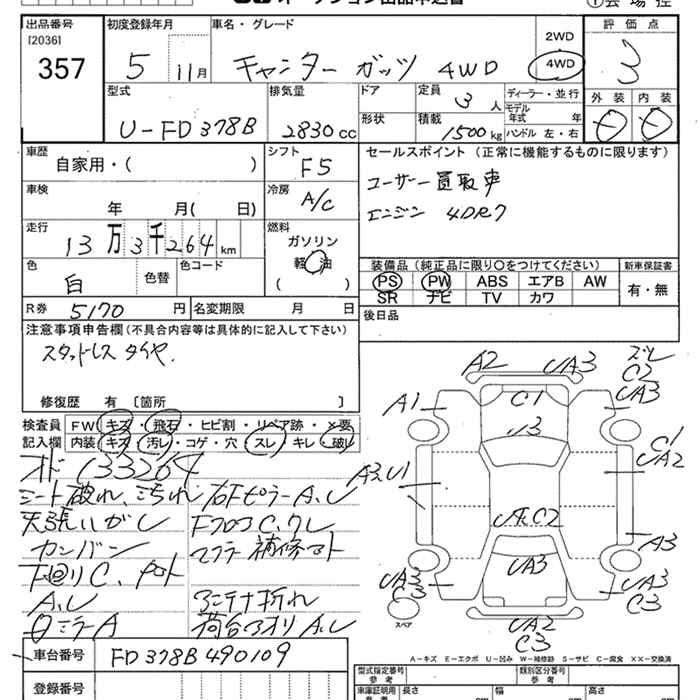 オークション出品申込書
①会場控
出品番号 初度登録年月 車名・グレード 評価点
[2036] 357 5 11月 キャンター ガッツ 4WD 2WD 4WD 3
型式 排気量 ドア 定員 ディーラー・並行 外装 内装
U-FD378B 2830cc 3人 モデル年式 年
形状 積載 1500kg ハンドル 左・右
車歴 シフト セールスポイント (正常に機能するものに限ります)
自家用・( ) F5 ユーザー買取車
車検 冷房 エンジン 4DR7
年 月( 日) A/C
走行 燃料
13万3千264km ガソリン 軽油 ( )
装備品 (純正品に限り〇をつけてください) 新車保証書
色 色替 色コード PS PW ABS エアB AW 有・無
白 SR ナビ TV カワ
R券 5170円 名変期限 月 日 後日品
注意事項申告欄 (不具合内容等は具体的に記入して下さい)
スタッドレス タイヤ.
修復歴 有 〔箇所 〕
検査員 FW キズ・飛石・ヒビ割・リペア跡・×要
記入欄 内装 キズ 汚レ・コゲ・穴 スレ キレ 破レ
133264
シート破れ、汚れ 右Fピラー A,U
天張はがし Fフロア C,クレ
カンバン マフラー補修アト
下回り C、
A,U アンテナ折れ
ミラー A 荷台アオリ A,U
A2 UA3 ズレ C2 UA3
A1 C1 U3 C1 UA2
A2 U1
C2 A3
UA3 C3 UA3 UA3 C3
UA2 C3
スペア
A-キズ E-エクボ U-凹み W-補修跡 S-サビ C-腐食 ××-交換済
車台番号 FD378B490109
登録番号
型式指定番号 参考 類別区分番号 参考
車庫証明用 参考 長さ cm 幅 cm 高さ cm